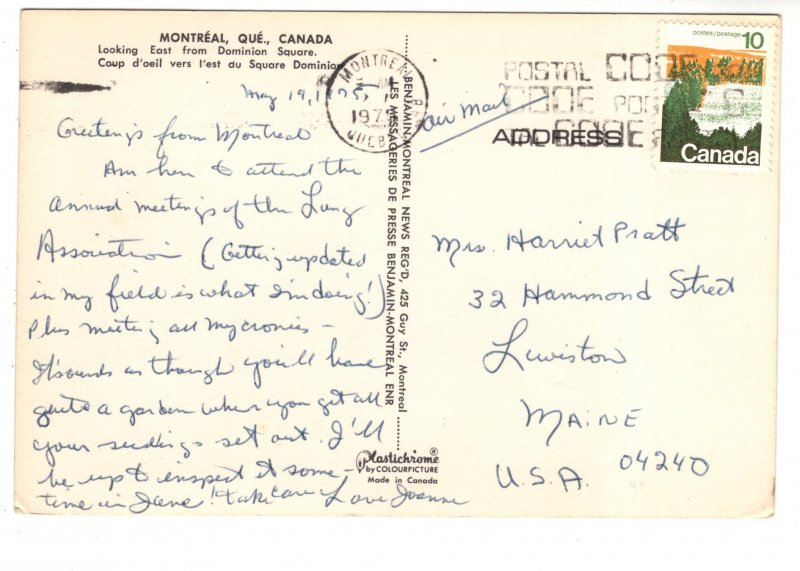 MONTRÉAL, QUÉ., CANADA
Looking East from Dominion Square.
Coup d'oeil vers l'est du Square Dominion
May 19, 1975
Greetings from Montreal
Am here to attend the
Annual meetings of the Lung
Association (Getting updated
in my field is what I'm doing!)
Plus meeting all my cronies –
It sounds as though you'll have
quite a garden when you get all
your seedings set out. I'll
be up to inspect it some–
time in June! Take care. Love Joanne
BENJAMIN-MONTREAL NEWS REG'D, 425 Guy St., Montreal
LES MESSAGERIES DE PRESSE BENJAMIN-MONTREAL ENR
Plastichrome®
by COLOURPICTURE
Made in Canada
MONTREAL
197
QUEBEC
POSTAL CODE
CODE
ADDRESS
CODE
postes/postage 10
Canada
Air Mail
Mrs. Harriet Pratt
32 Hammond Street
Lewiston
MAINE
U.S.A. 04240